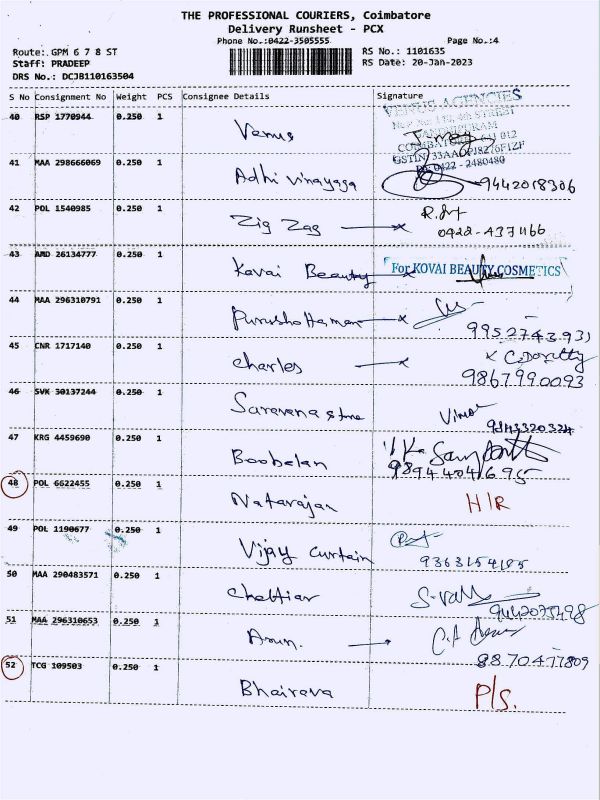 THE PROFESSIONAL COURIERS, Coimbatore
Delivery Runsheet - PCX
Phone No.:0422-3505555 Page No.:4
Route: GPM 6 7 8 ST RS No.: 1101635
Staff: PRADEEP RS Date: 20-Jan-2023
DRS No.: DCJB110163504
S No Consignment No Weight PCS Consignee Details Signature
40 RSP 1770944 0.250 1 Venus
VENUS AGENCIES
4th STREET
GANDHIPURAM
COIMBATORE - 641 012
GSTIN: 33AAOPJ8276F1ZF
0422 - 2480480
41 MAA 298666069 0.250 1
Adhi vinayaga 9442018306
42 POL 1540985 0.250 1
Zig Zag x 0422-4371166
43 AMD 26134777 0.250 1
Kovai Beauty x For KOVAI BEAUTY COSMETICS
44 MAA 296310791 0.250 1
Purushothaman x 9952743931
45 CNR 1717140 0.250 1
charles x x C. Dorathy
9867990093
46 SVK 30137244 0.250 1
Saravana store
9843320324
47 KRG 4459690 0.250 1
Boobalan
9894404695
48 POL 6622455 0.250 1
Natarajan H/R
49 POL 1190677 0.250 1
Vijay curtain 9363154195
50 MAA 290483571 0.250 1
Chettiar 9442075498
51 MAA 296310653 0.250 1
Arun. 8870477809
52 TCG 109503 0.250 1
Bhairava P/S.